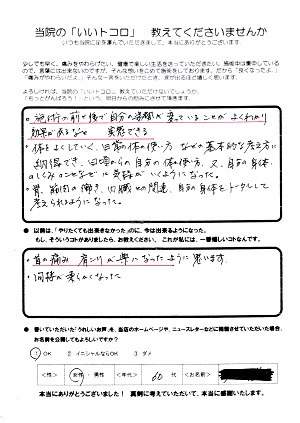 当院の「いいトコロ」 教えてくださいませんか
いつも当院に足を運んでいただきまして、本当にありがとうございます
少しでも早く、痛みをやわらげたい、健康で楽しい生活を送っていただきたい。施術中は集中しているので、言葉には出来ないのですが、そんな想いをこめて施術をしております。だから「良くなったよ。」
よろしければ、当院の「いいトコロ」教えていただけないでしょうか。
「ちっとがんばろう！」という、明日からの励みにさせて頂きます。
・施術の前と後で自分の姿勢が変っていることがよくわかり
効果が来るなと 実感できる
・体をよくしていく、日常の体の使い方などの基本的な考え方に
納得でき、日頃からの自分の体の使い方、又、自分の身体、
・骨、筋肉の働き、内臓との関連、自分の身体をトータルして
考えられるようになった。
● 以前は、「やりたくても出来きなかった」のに、今は出来るようになった。
もし、そういうコトがありましたら、お教えください。 これが私には、一番嬉しいコトなんです。
・首の痛み 肩こりが楽になったように思います。
・関節が柔らかくなった
● 書いていただいた「うれしいお声」を、当店のホームページや、ニュースレターなどに掲載させていただいた場合、
お名前を公開してもよろしいですか？
1 OK 2 イニシャルならOK 3 ダメ
＜性＞ 女性・男性 ＜年代＞ 60 代 ＜お名前＞
本当にありがとうございました！ 真剣に考えていただいて、本当に感謝いたします。